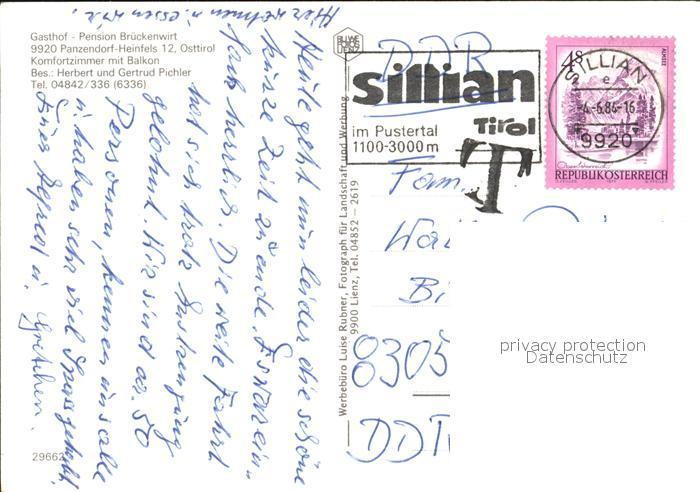 Gasthof - Pension Brückenwirt
9920 Panzendorf-Heinfels 12, Osttirol
Komfortzimmer mit Balkon
Bes.: Herbert und Gertrud Pichler
Tel. 04842/336 (6336)
Hier wohnen u. essen wir.
Heute geht nun leider die schöne
kurze Zeit zu Ende. Es war ein-
fach herrlich. Die weite Fahrt
hat sich trotz Anstrengung
gelohnt. Wir sind ca. 50
Personen, kennen uns alle
u. haben sehr viel Spass gehabt.
Eure u. Gretchen.
29662
Werbebüro Luise Rubner, Fotograph für Landschaft und Werbung
9900 Lienz, Tel. 04852 – 2619
DDR
sillian
im Pustertal
Tirol
1100-3000 m
T
SILLIAN
e
-4.-6.84-16
9920
4 S
ALMSEE
REPUBLIK ÖSTERREICH
Fam.
8305
privacy protection
Datenschutz